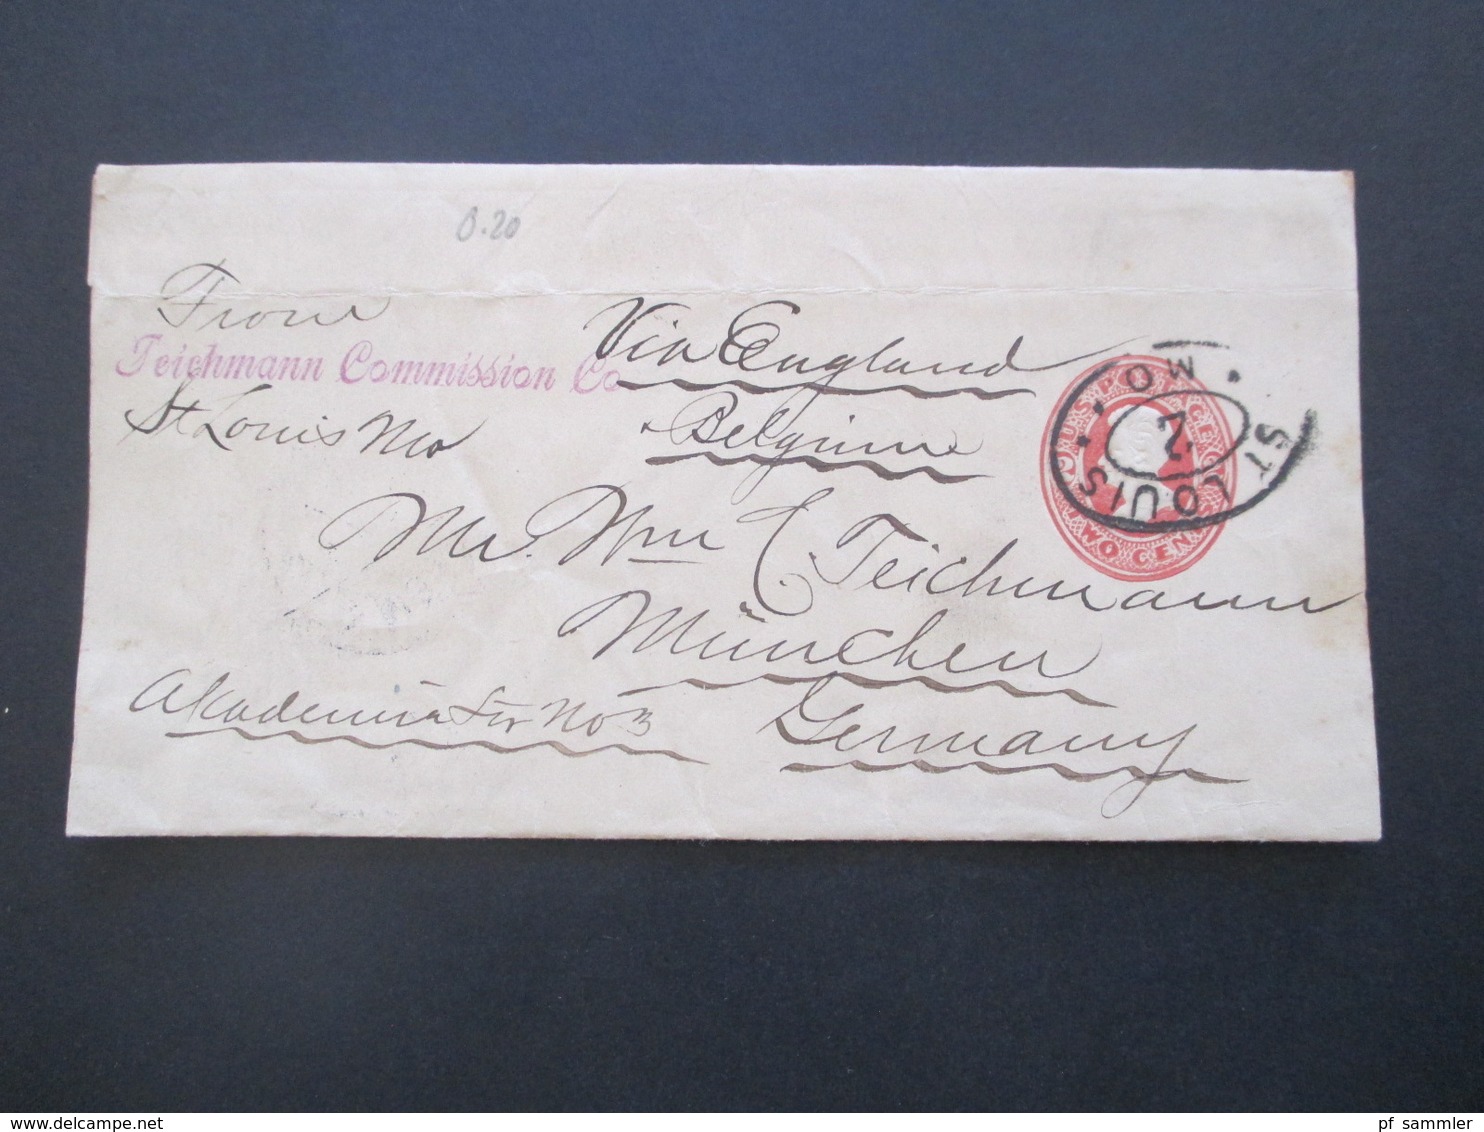 0.20
From
Teichmann Commission Co
St Louis Mo
Via England
Belgium
Mr. Wm C. Teichmann
München
Akademie Str No 3
Germany
U.S. POSTAGE
TWO CENTS
ST LOUIS MO.
2
pf_sammler